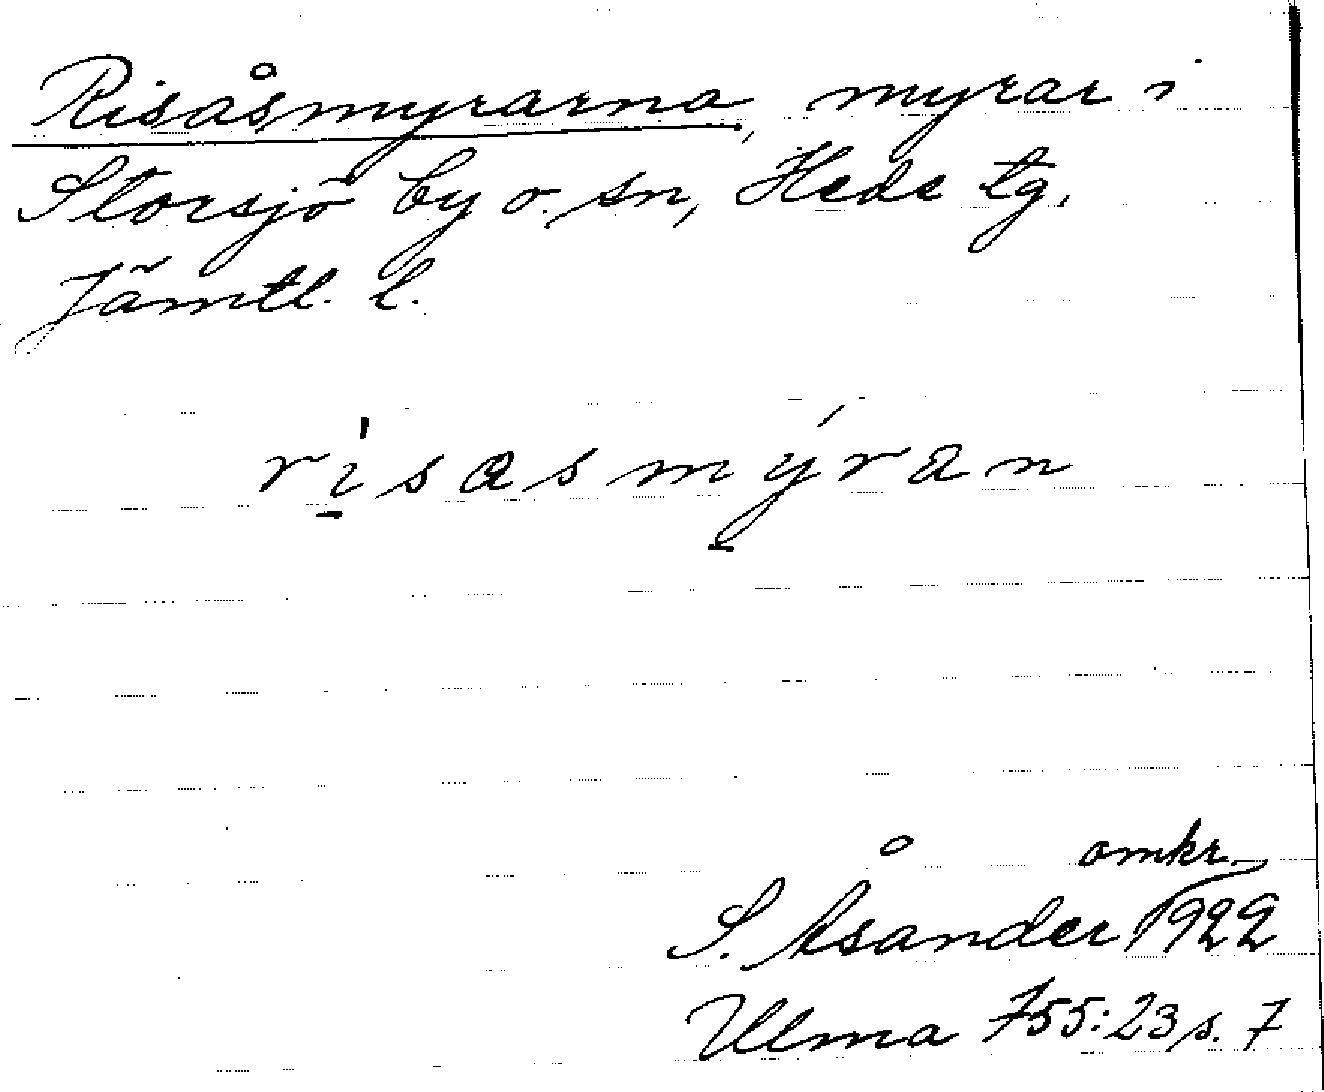 Risåsmyrarna, myrar i
Storsjö by o. sn, Hede tg,
Jämtl. l.
rísasmýran
omkr.
S. Åsander 1922
Ulma 755:23 s. 7